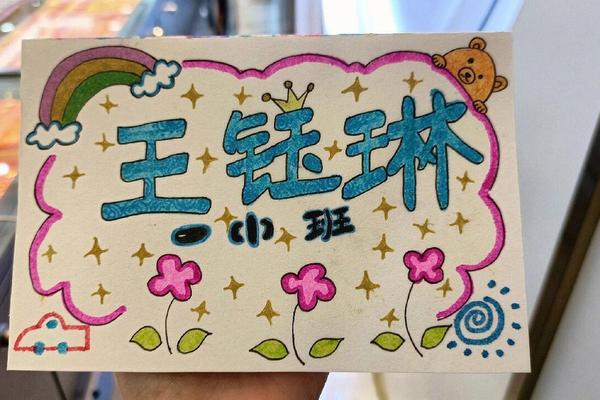 王钰琳
一小班